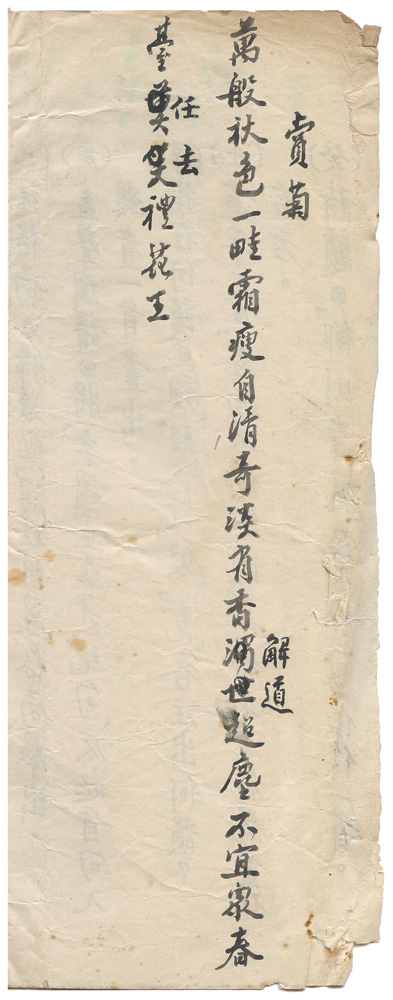 賞菊
解道
萬般秋色一畦霜瘦自清奇淡有香濁世超塵不宜衆春
任去
臺莫笑禮花王